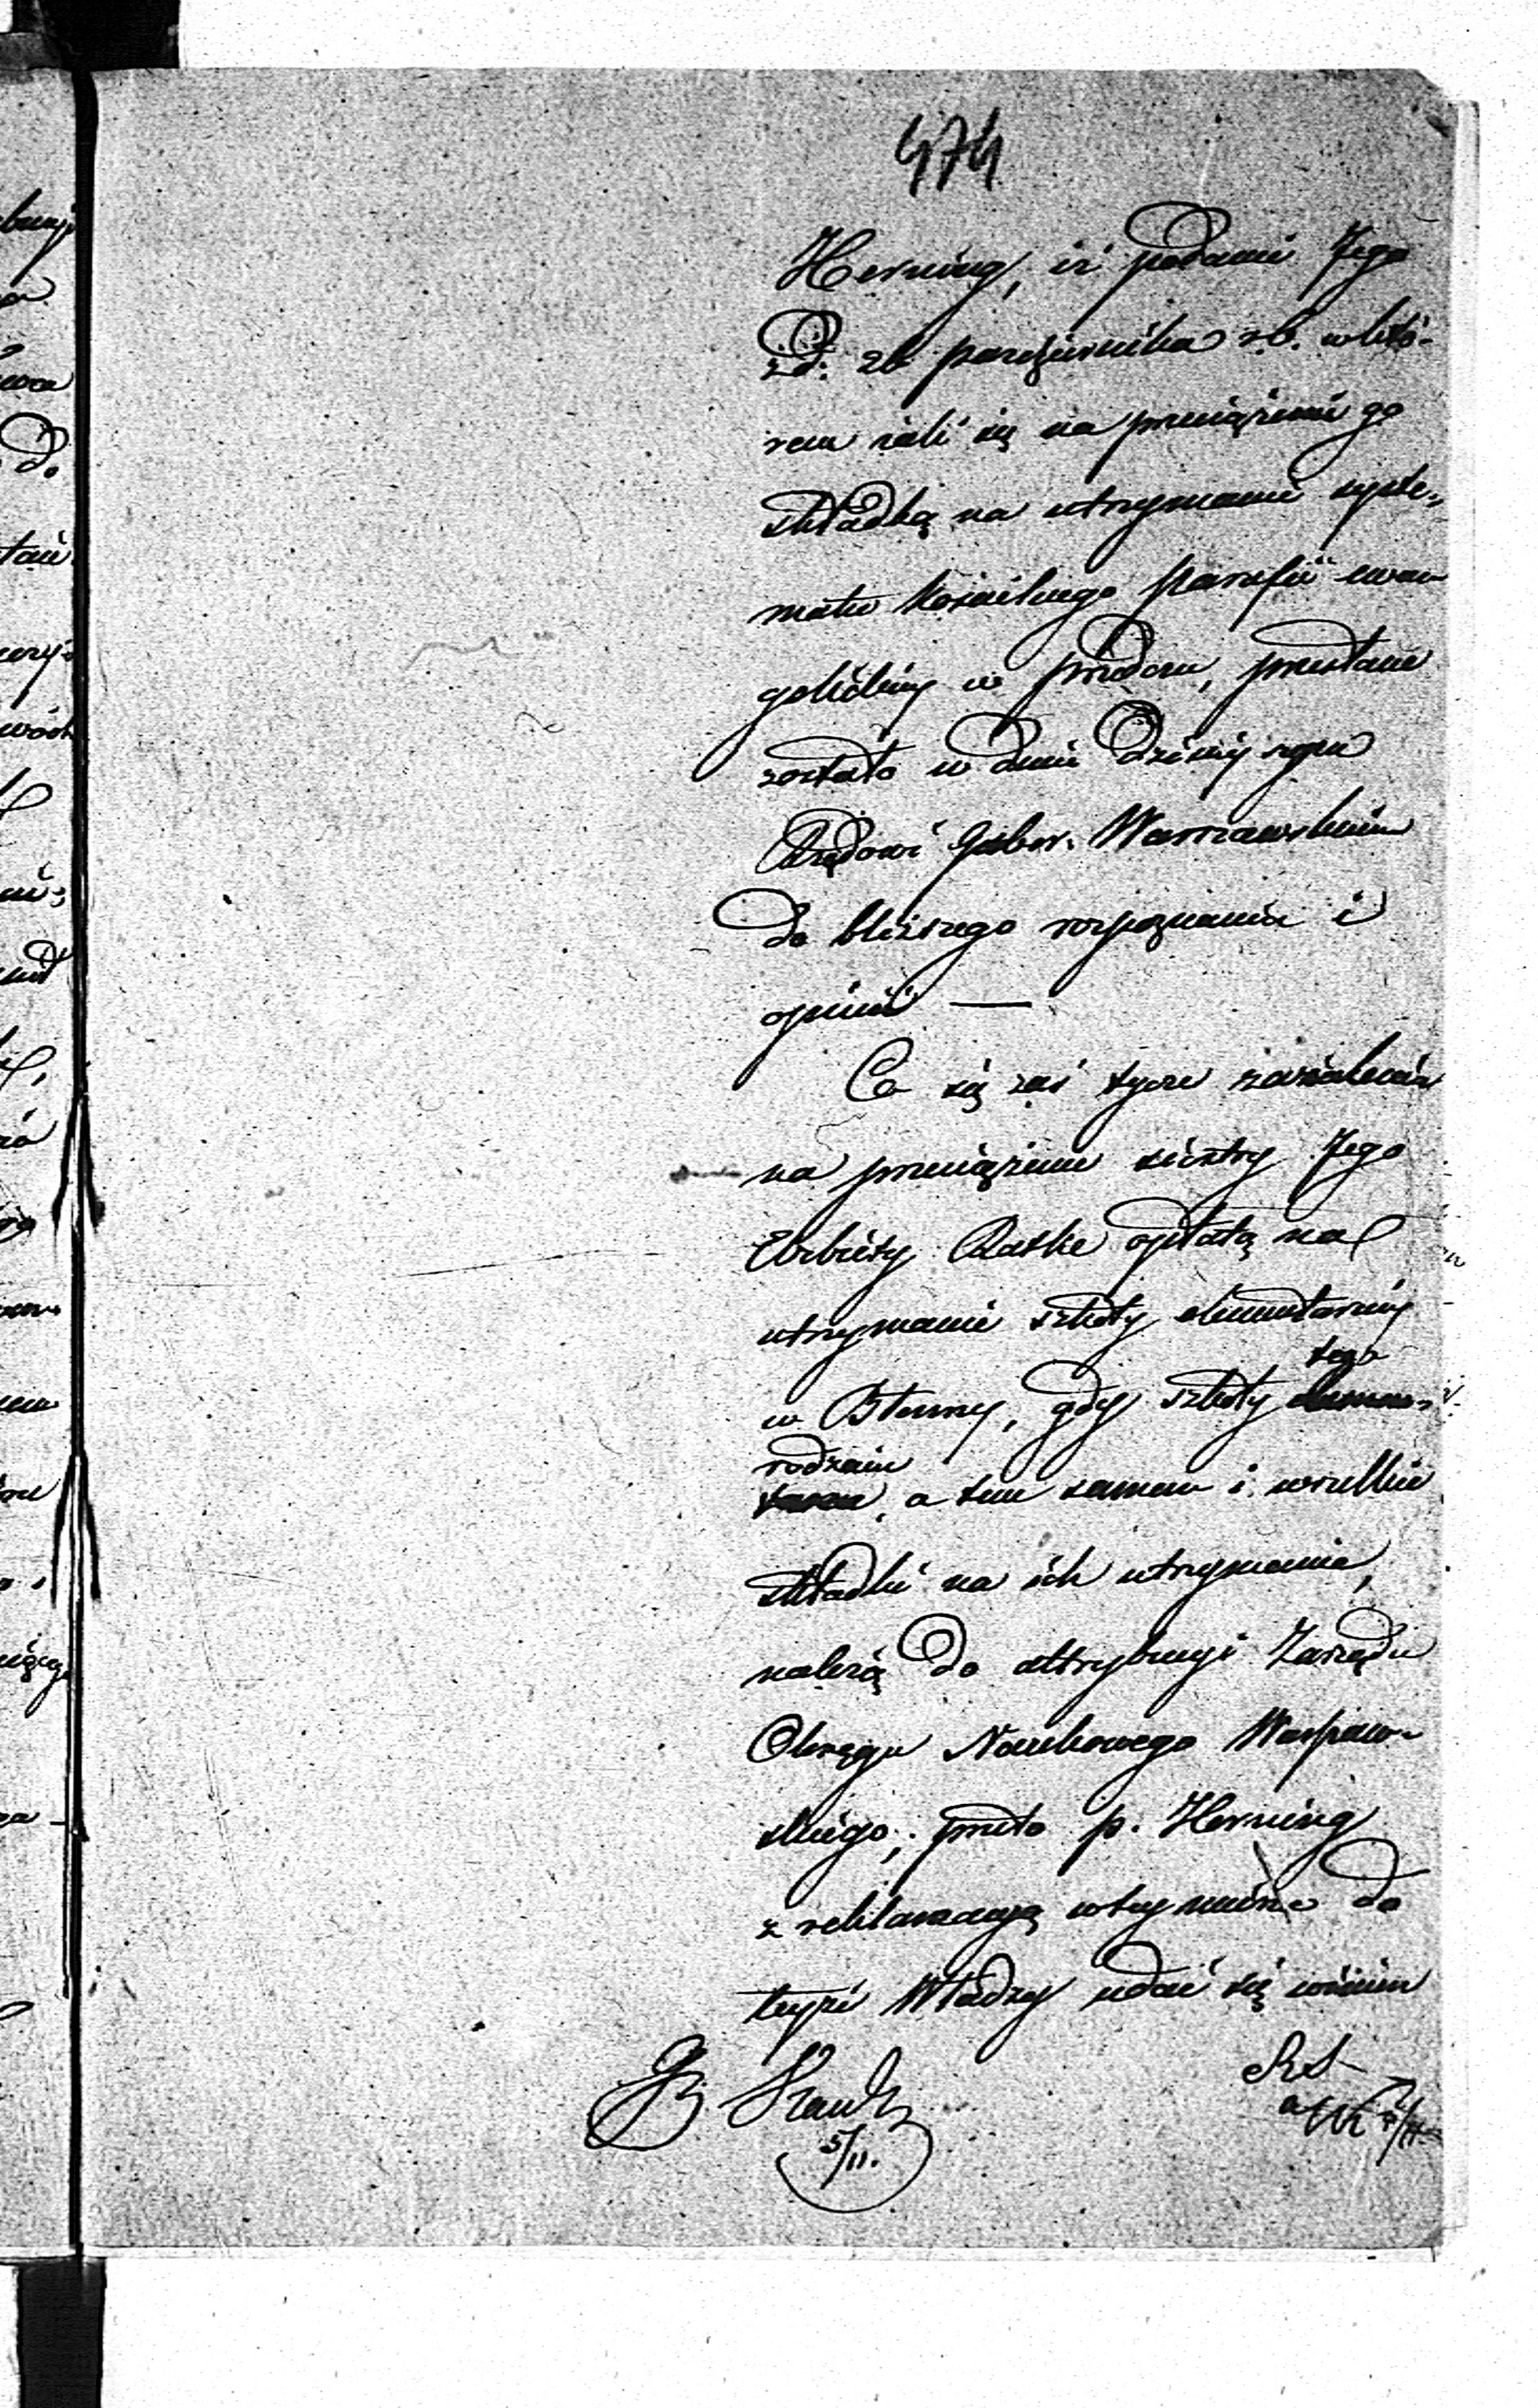 474
Herning, iż podanie Jego
z d: 26 października r.b. w któ-
rem żali się na przeciążenie go
składką na utrzymanie syste-
matu kościelnego parafii ewan
gelickiej w, przesłane
zostało w dniu dzisiejszym
Rządowi Guber. Warszawskiemu
do bliższego rozpoznania i
opinii —
Co się zaś tycze zażalenia
na przeciążenie siostry Jego
Elżbiety Raske opłatą na
utrzymanie szkoły elementarnej
tego
w, gdy szkoły elemen-
rodzaiu
tarne, a tem samem i wszelkie
składki na ich utrzymanie,
należą do attrybucyi Zarządu
Okręgu Naukowego Warszaw-
skiego; przeto p. Herning
z reklamacyą w tey mierze do
teyże Władzy udać się winien
5/11.